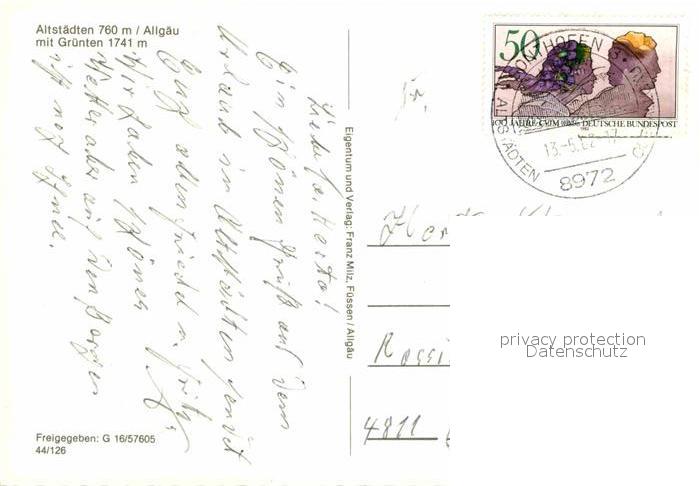 Altstädten 760 m / Allgäu
mit Grünten 1741 m
Liebe Fa. Herta!
Ein schönen Gruß aus dem
Urlaub in Altstädten sendet
Euch allen Friedel u. Fritz.
Wir haben schönes
Wetter aber auf den Bergen
ist noch Schnee.
Eigentum und Verlag: Franz Milz, Füssen / Allgäu
Freigegeben: G 16/57605
44/126
50
100 JAHRE CVJM DEUTSCHE BUNDESPOST
SONTHOFEN
ALTSTÄDTEN
8972
Rossi
4811
privacy protection
Datenschutz